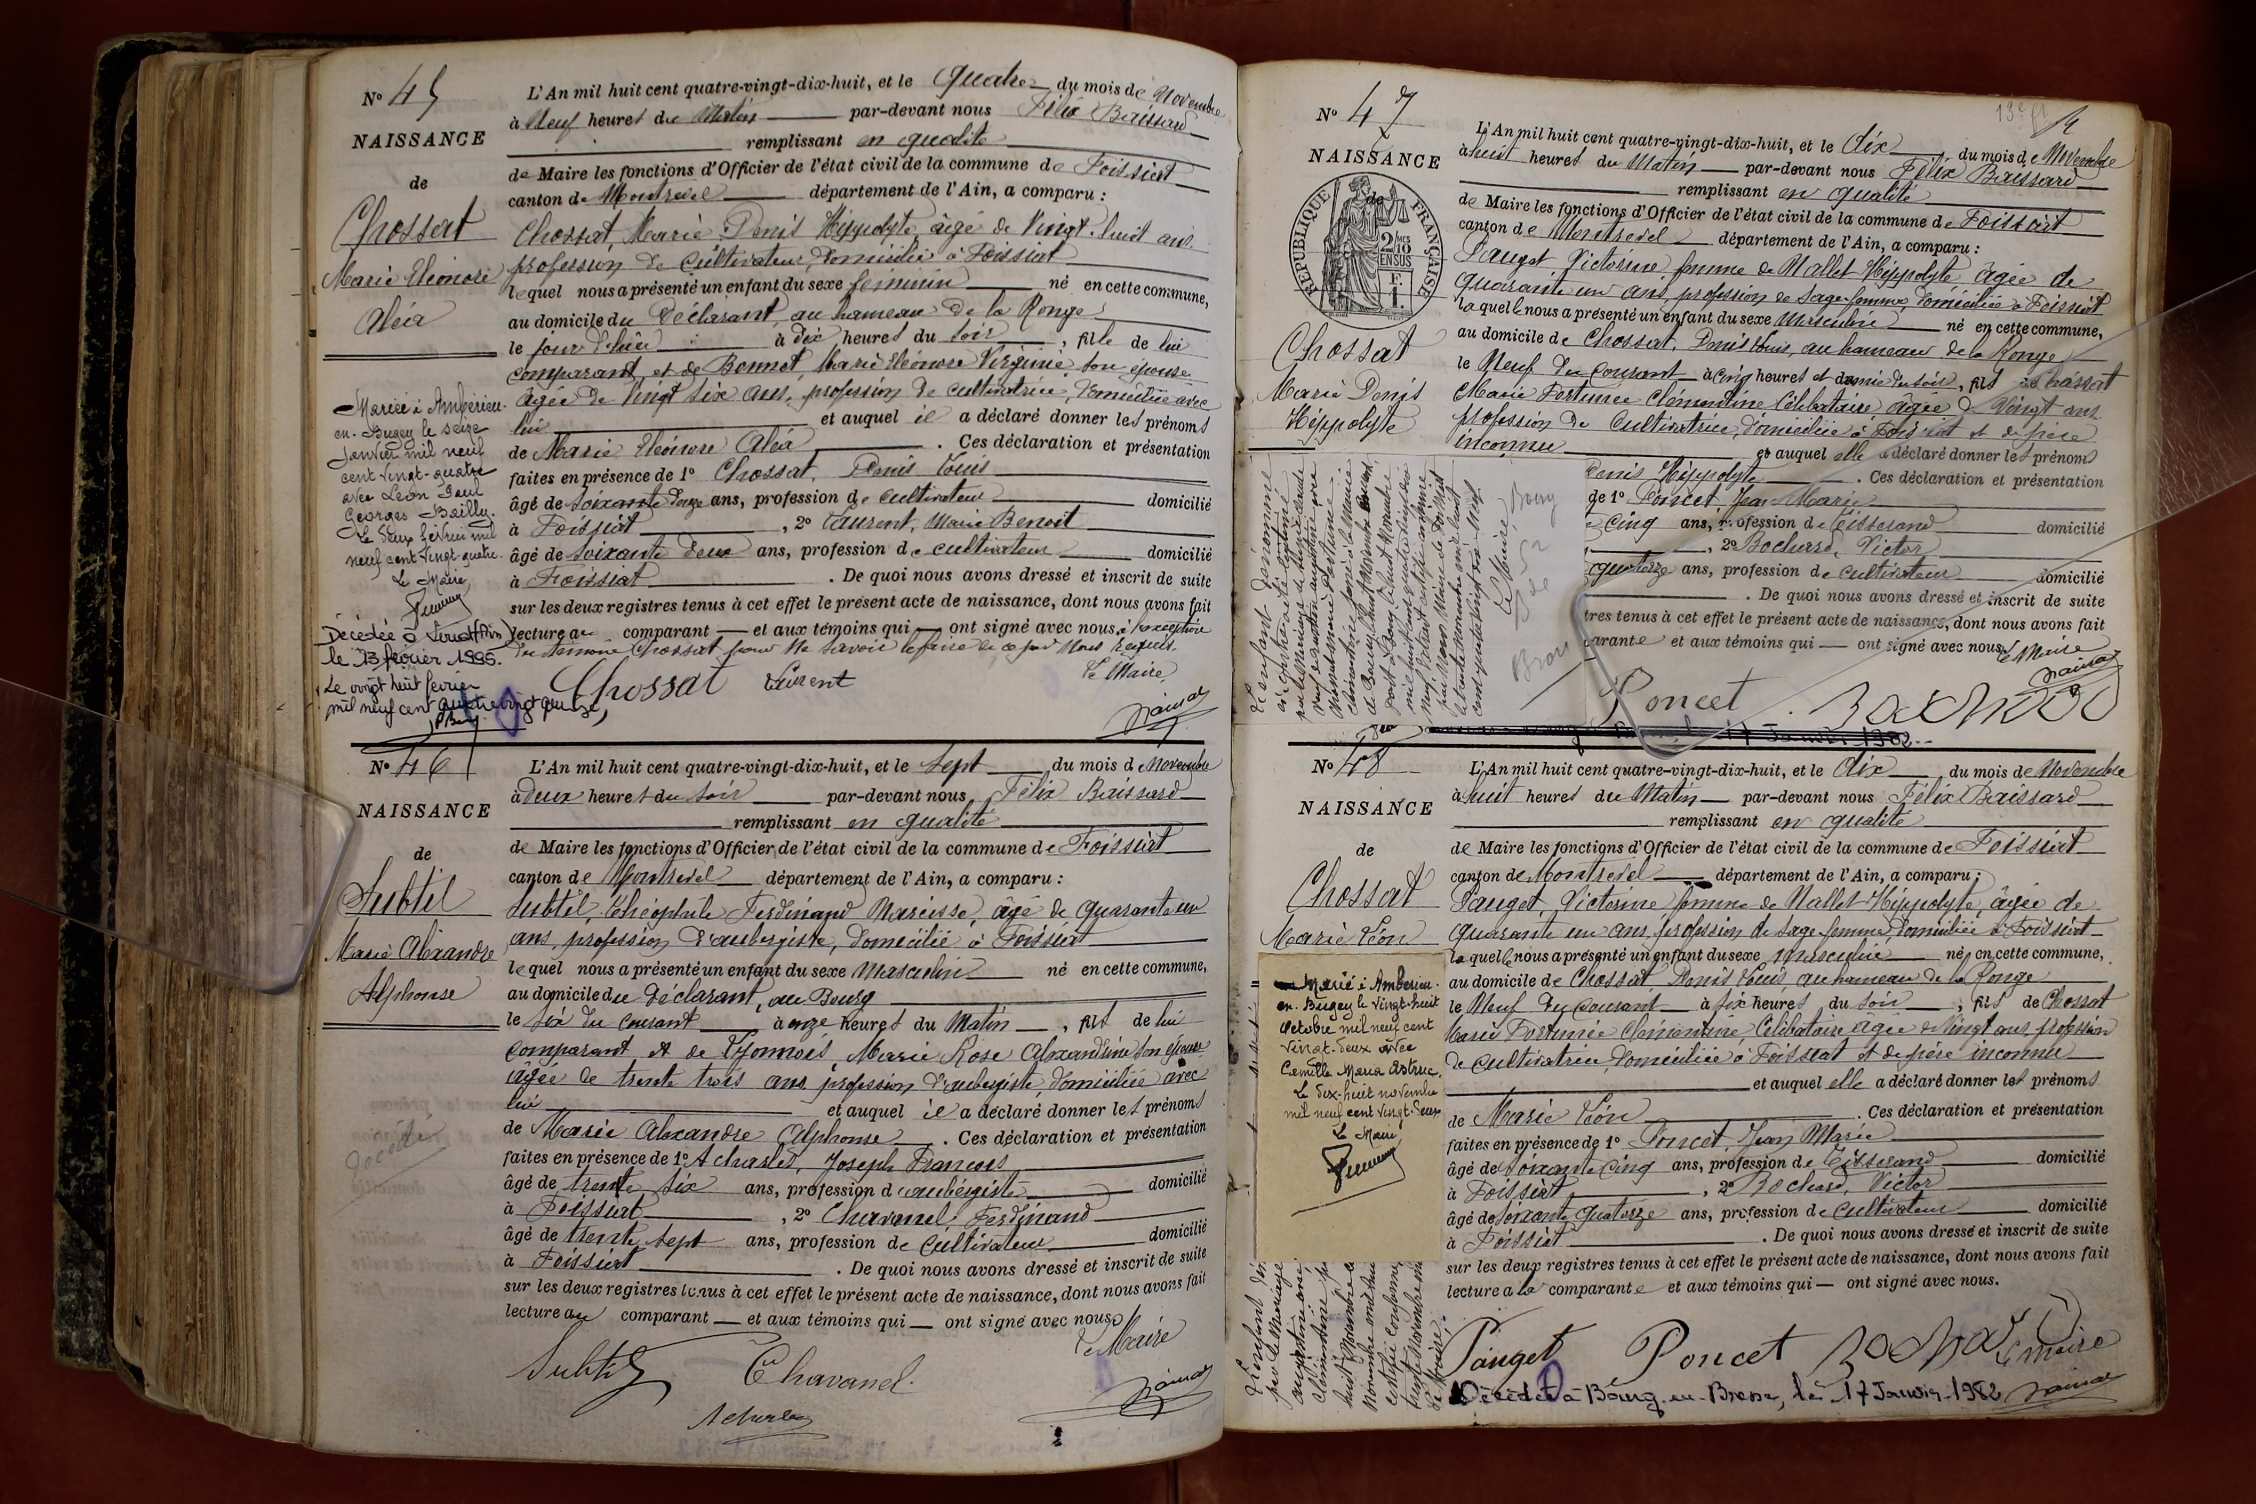 N° 45
NAISSANCE
de
Chossat
Marie Eléonore
Aléa
Mariée à Ambérieu-
en-Bugey le seize
Janvier mil neuf
cent vingt-quatre
avec Léon Paul
Georges Bailly.
Le deux février mil
neuf cent vingt-quatre.
Le Maire,
Décédée à (Ain)
le 13 février 1995.
Le vingt huit février
mil neuf cent quatre vingt quinze,
L'An mil huit cent quatre-vingt-dix-huit, et le quatre du mois de Novembre
à Neuf heures du Matin par-devant nous Félix Baissard
remplissant en qualité
de Maire les fonctions d'Officier de l'état civil de la commune de Foissiat
canton de Montrevel département de l'Ain, a comparu :
Chossat, Marie Denis Hippolyte, âgé de Vingt-huit ans
profession de Cultivateur, domicilié à Foissiat
lequel nous a présenté un enfant du sexe féminin né en cette commune,
au domicile du Déclarant, au hameau de la Ronge
le jour d'hier à dix heures du soir, fille de lui
comparant et de Bonnet Marie Eléonore Virginie son épouse
âgée de Vingt six ans, profession de cultivatrice, domiciliée avec
lui et auquel il a déclaré donner les prénoms
de Marie Eléonore Aléa. Ces déclaration et présentation
faites en présence de 1° Chossat, Denis Louis
âgé de soixante douze ans, profession de cultivateur domicilié
à Foissiat, 2° Laurent, Marie Benoit
âgé de soixante deux ans, profession de cultivateur domicilié
à Foissiat. De quoi nous avons dressé et inscrit de suite
sur les deux registres tenus à cet effet le présent acte de naissance, dont nous avons fait
lecture au comparant et aux témoins qui ont signé avec nous, à l'exception
du témoin Chossat pour ne savoir le faire de ce par Nous Requis.
Chossat Laurent Le Maire,
N° 46
NAISSANCE
de
Subtil
Marie Alexandre
Alphonse
Décédé
L'An mil huit cent quatre-vingt-dix-huit, et le sept du mois de Novembre
à deux heures du soir par-devant nous Félix Baissard
remplissant en qualité
de Maire les fonctions d'Officier de l'état civil de la commune de Foissiat
canton de Montrevel département de l'Ain, a comparu :
Subtil, Théophile Ferdinand Narcisse, âgé de quarante un
ans, profession d'aubergiste, domicilié à Foissiat
lequel nous a présenté un enfant du sexe Masculin né en cette commune,
au domicile du déclarant, au Bourg
le six du courant à onze heures du Matin, fils de lui
comparant et de Lyonnois Marie Rose Alexandrine son épouse
âgée de trente trois ans, profession d'aubergiste, domiciliée avec
lui et auquel il a déclaré donner les prénoms
de Marie Alexandre Alphonse. Ces déclaration et présentation
faites en présence de 1° Acharles, Joseph François
âgé de trente six ans, profession d'aubergiste domicilié
à Foissiat, 2° Chavanel, Ferdinand
âgé de trente sept ans, profession de cultivateur domicilié
à Foissiat. De quoi nous avons dressé et inscrit de suite
sur les deux registres tenus à cet effet le présent acte de naissance, dont nous avons fait
lecture au comparant et aux témoins qui ont signé avec nous.
Le Maire
Subtil Chavanel
N° 47
NAISSANCE
de
RÉPUBLIQUE FRANÇAISE
2/10 EN SUS
Chossat
Marie Denis
Hippolyte
L'An mil huit cent quatre-vingt-dix-huit, et le dix du mois de Novembre
à huit heures du Matin par-devant nous Félix Baissard
remplissant en qualité
de Maire les fonctions d'Officier de l'état civil de la commune de Foissiat
canton de Montrevel département de l'Ain, a comparu :
Pauget, Victorine, femme de Nallet Hippolyte âgée de
quarante un ans, profession de sage-femme, domiciliée à Foissiat
laquelle nous a présenté un enfant du sexe Masculin né en cette commune,
au domicile de Chossat, Denis Louis, au hameau de la Ronge
le Neuf du courant à cinq heures et demie du soir, fils de Chossat
Marie Fortunée Clémentine, Célibataire âgée de Vingt ans
profession de cultivatrice, domiciliée à Foissiat et de père
inconnu et auquel elle a déclaré donner les prénoms
Denis Hippolyte. Ces déclaration et présentation
de 1° Poncet, Jean Marie
cinq ans, profession de Tisserand domicilié
, 2° Bochard, Victor
quatorze ans, profession de cultivateur domicilié
. De quoi nous avons dressé et inscrit de suite
tres tenus à cet effet le présent acte de naissance, dont nous avons fait
arante et aux témoins qui ont signé avec nous.
Le Maire
Poncet Bochard
17 Janvier 1982
N° 48
NAISSANCE
de
Chossat
Marie Léon
Marié à Ambérieu-
en-Bugey le vingt-huit
Octobre mil neuf cent
vingt-deux avec
Camille Maria Astruc.
Le dix-huit novembre
mil neuf cent vingt-deux
Le Maire,
L'An mil huit cent quatre-vingt-dix-huit, et le dix du mois de Novembre
à huit heures du Matin par-devant nous Félix Baissard
remplissant en qualité
de Maire les fonctions d'Officier de l'état civil de la commune de Foissiat
canton de Montrevel département de l'Ain, a comparu :
Pauget, Victorine femme de Nallet Hippolyte, âgée de
quarante un ans, profession de sage femme, domiciliée à Foissiat
laquelle nous a présenté un enfant du sexe Masculin né en cette commune,
au domicile de Chossat, Denis Louis, au hameau de la Ronge
le Neuf du courant à six heures du soir, fils de Chossat
Marie Fortunée Clémentine, Célibataire âgée de Vingt ans profession
de cultivatrice, domiciliée à Foissiat et de père inconnu
et auquel elle a déclaré donner les prénoms
de Marie Léon. Ces déclaration et présentation
faites en présence de 1° Poncet, Jean Marie
âgé de soixante cinq ans, profession de Tisserand domicilié
à Foissiat, 2° Bochard, Victor
âgé de soixante quatorze ans, profession de cultivateur domicilié
à Foissiat. De quoi nous avons dressé et inscrit de suite
sur les deux registres tenus à cet effet le présent acte de naissance, dont nous avons fait
lecture à la comparante et aux témoins qui ont signé avec nous.
Pauget Poncet Bochard Le Maire
Décédé à Bourg-en-Bresse, le 17 Janvier 1982